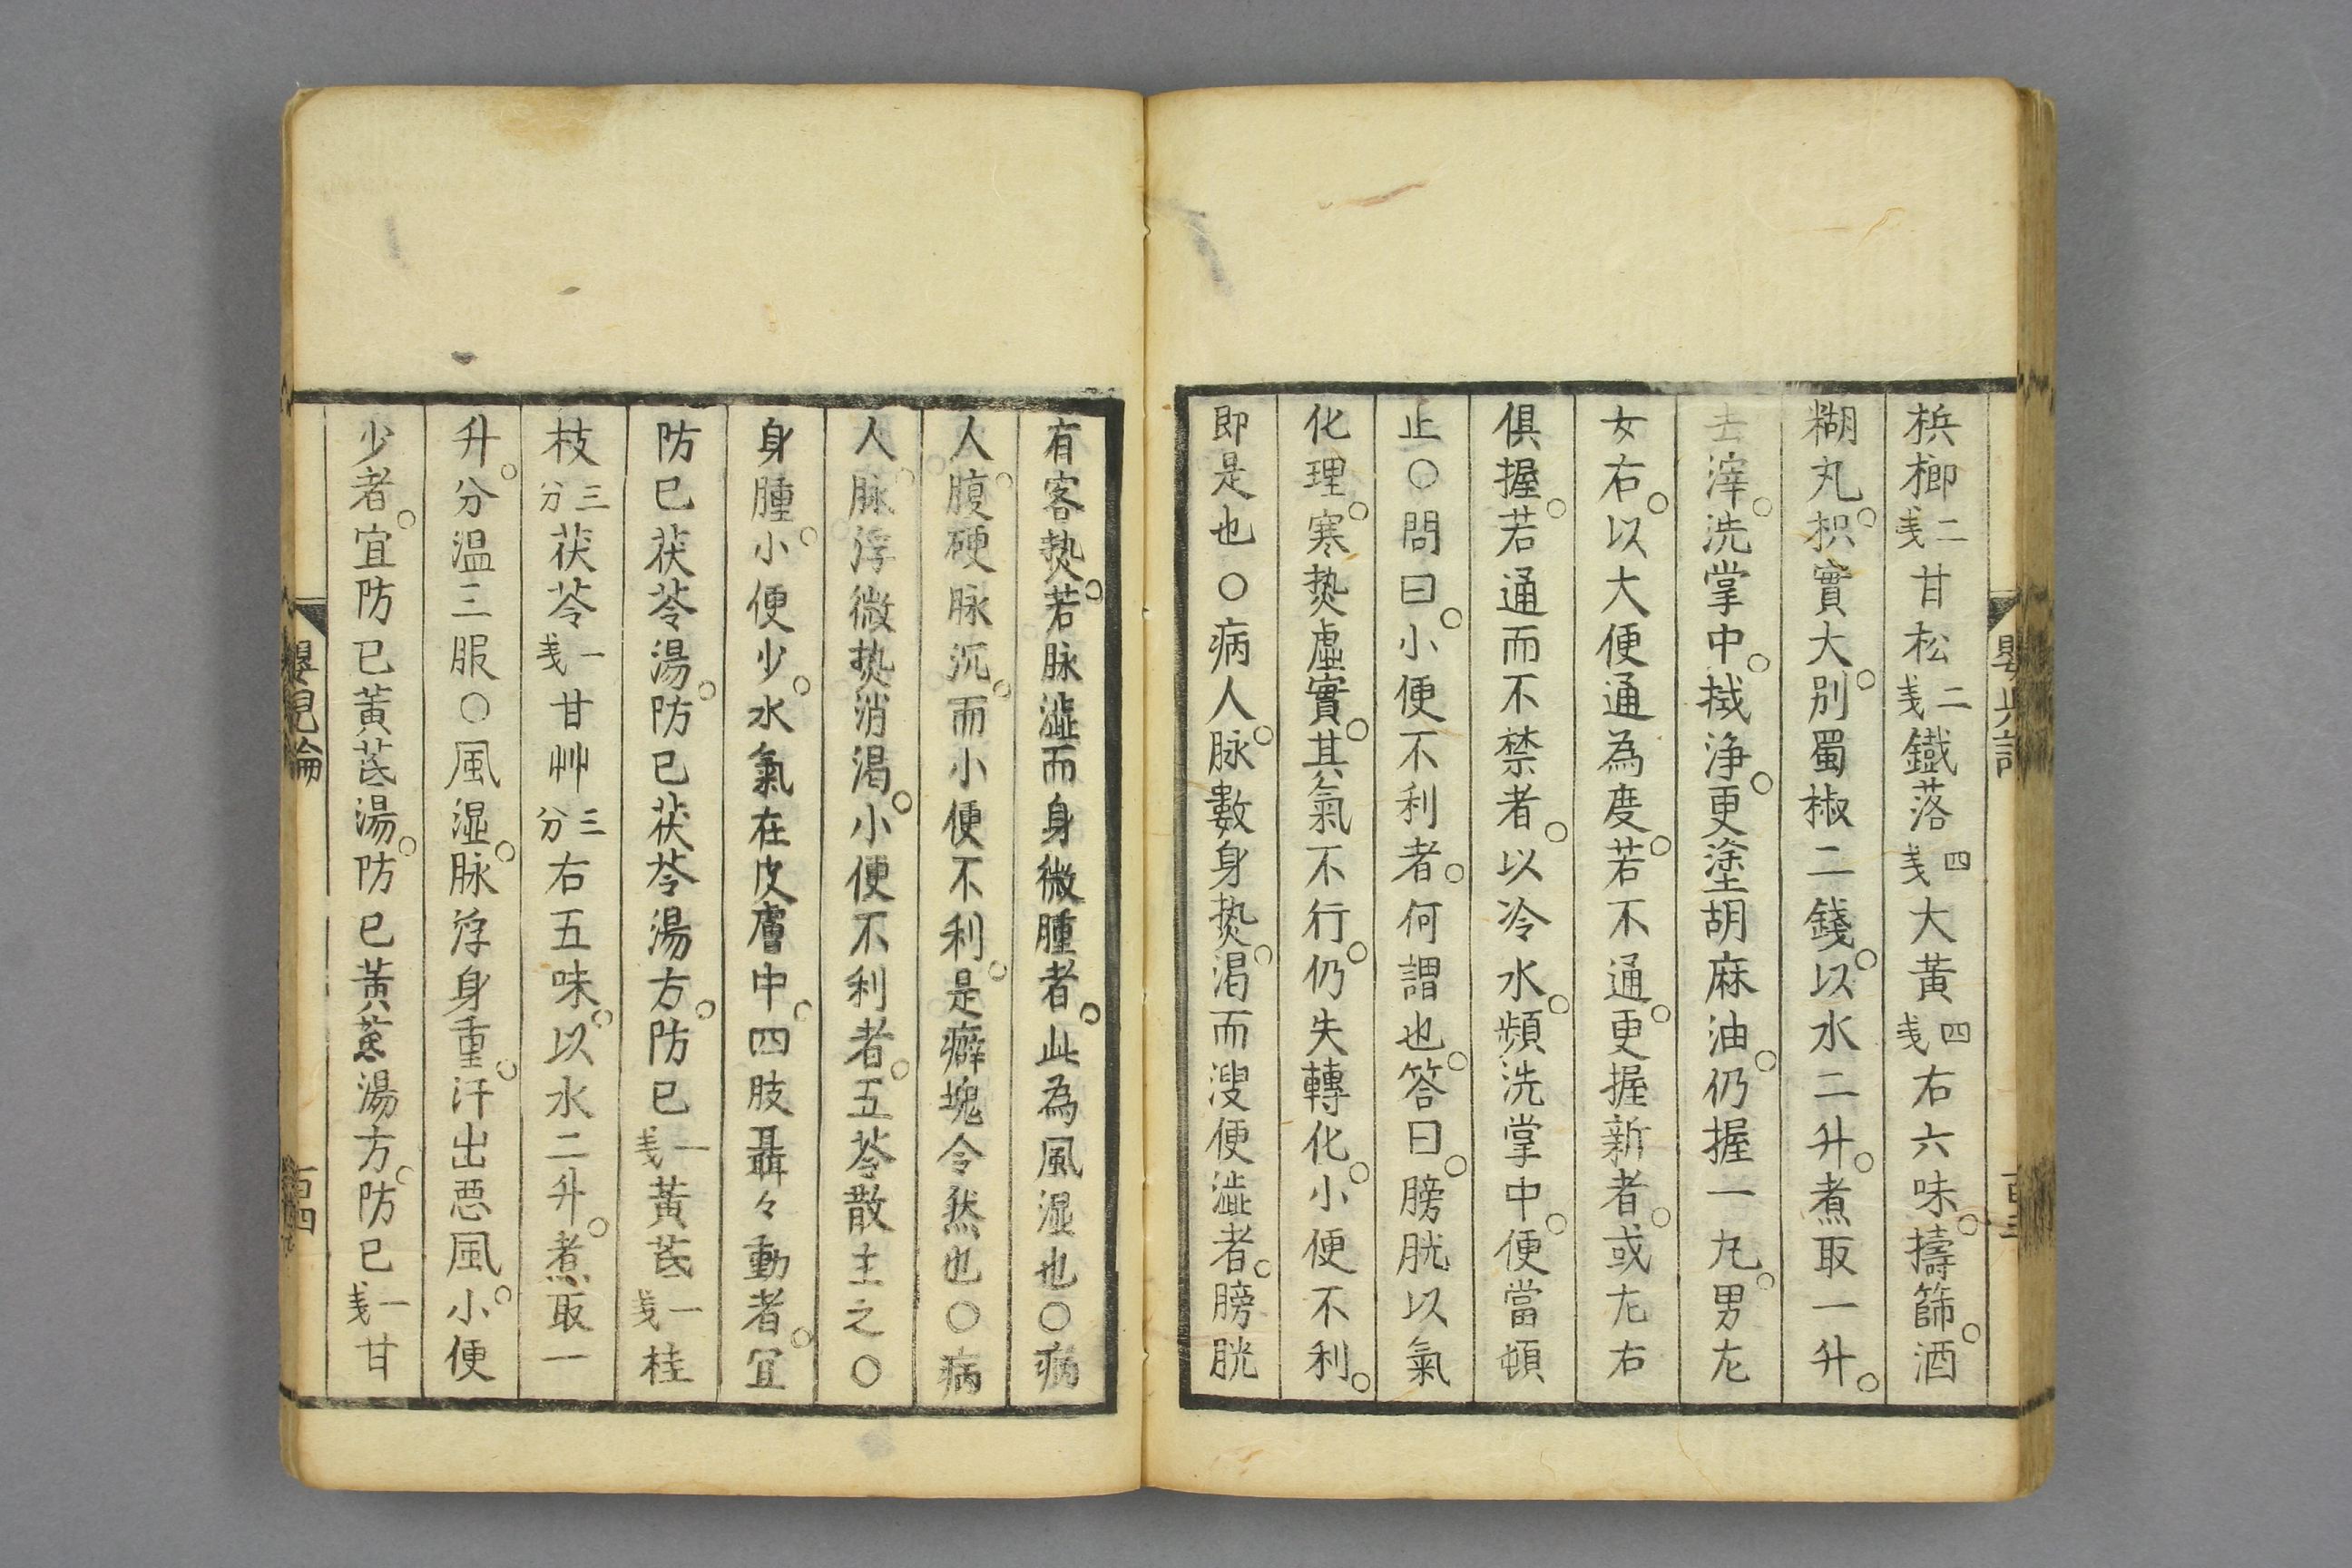 梹榔二戔甘松二戔鐵落四戔大黄四戔右六味擣篩酒
糊丸枳實大別蜀椒二錢以水二升煮取一升
去滓洗掌中拭净更塗胡麻油仍握一丸男左
女右以大便通為度若不通更握新者或左右
俱握若通而不禁者以冷水頻洗掌中便當頓
止○問曰小便不利者何謂也答曰膀胱以氣
化理寒熱虛實其氣不行仍失轉化小便不利
即是也○病人脉數身熱渇而溲便澁者膀胱
有客熱若脉澁而身微腫者此為風湿也○病
人腹硬脉沉而小便不利是癖塊令然也○病
人脉浮微熱消渇小便不利者五苓散主之○
身腫小便少水氣在皮膚中四肢聶々動者宜
防已茯苓湯防已茯苓湯方防已一戔黄芪一戔桂
枝三分茯苓一戔甘艸三分右五味以水二升煮取一
升分温三服○風湿脉浮身重汗出悪風小便
少者宜防已黄芪湯防已黄芪湯方防已一戔甘
嬰兒論
百四